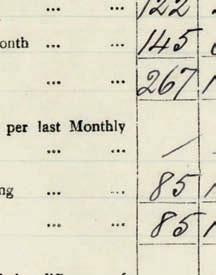 ... ... 122
onth ... ... 145
... ... 267
per last Monthly
... ... /
ng ... ... 85
... ... 85